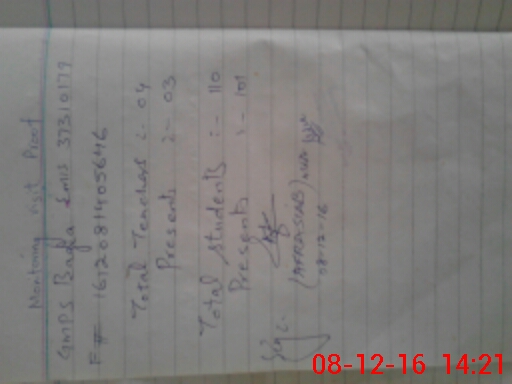 Monitoring Visit Proof
GMPS Bagla Emis 37310177
F# 16120811405646
Total Teachers :- 04
Presents :- 03
Total Students :- 110
Presents :- 101
Sign:-
08-12-16
08-12-16 14:21